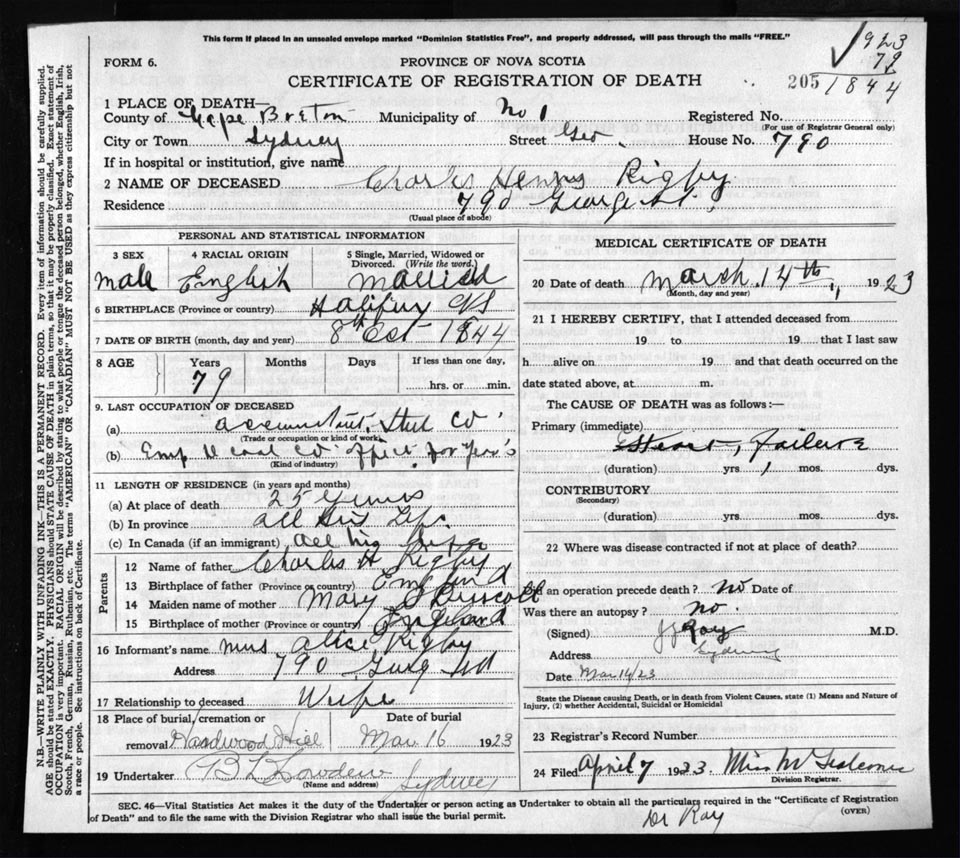 This form if placed in an unsealed envelope marked "Dominion Statistics Free", and properly addressed, will pass through the mails "FREE."
923
79
1844
FORM 6.
PROVINCE OF NOVA SCOTIA
CERTIFICATE OF REGISTRATION OF DEATH
205
1 PLACE OF DEATH—
County of Cape Breton Municipality of No 1 Registered No.
(For use of Registrar General only)
City or Town Sydney Street Geo House No. 790
If in hospital or institution, give name
2 NAME OF DECEASED Charles Henry Rigby
Residence 790 George St.
(Usual place of abode)
PERSONAL AND STATISTICAL INFORMATION
3 SEX 4 RACIAL ORIGIN 5 Single, Married, Widowed or Divorced. (Write the word.)
male English married
6 BIRTHPLACE (Province or country) Halifax NS
7 DATE OF BIRTH (month, day and year) 8th Oct 1844
8 AGE Years Months Days If less than one day,
79 hrs. or min.
9. LAST OCCUPATION OF DECEASED
(a) accountant, Steel Co
(Trade or occupation or kind of work)
(b) Emp coal Co office for Years
(Kind of industry)
11 LENGTH OF RESIDENCE (in years and months)
(a) At place of death 25 Years
(b) In province all his Life
(c) In Canada (if an immigrant) all his Life
Parents
12 Name of father Charles H Rigby
13 Birthplace of father (Province or country) England
14 Maiden name of mother Mary Driscoll
15 Birthplace of mother (Province or country) England
16 Informant's name Mrs Alice Rigby
Address 790 St
17 Relationship to deceased Wife
18 Place of burial, cremation or removal Hardwood Hill
Date of burial Mar 16 1923
19 Undertaker Sydney
(Name and address)
MEDICAL CERTIFICATE OF DEATH
20 Date of death March 14th, 1923
(Month, day and year)
21 I HEREBY CERTIFY, that I attended deceased from
19 to 19 that I last saw
h alive on 19 and that death occurred on the
date stated above, at m.
The CAUSE OF DEATH was as follows:—
Primary (immediate)
Heart Failure
(duration) yrs. 1 mos. dys.
CONTRIBUTORY
(Secondary)
(duration) yrs. mos. dys.
22 Where was disease contracted if not at place of death?
Did an operation precede death? no Date of
Was there an autopsy? no.
(Signed) Roy M.D.
Address Sydney
Date Mar 14/23
State the Disease causing Death, or in death from Violent Causes, state (1) Means and Nature of
Injury, (2) whether Accidental, Suicidal or Homicidal
23 Registrar's Record Number
24 Filed April 7 1923 Miss
Division Registrar.
SEC. 46—Vital Statistics Act makes it the duty of the Undertaker or person acting as Undertaker to obtain all the particulars required in the "Certificate of Registration
of Death" and to file the same with the Division Registrar who shall issue the burial permit.
(OVER)
Dr Roy
N.B.—WRITE PLAINLY WITH UNFADING INK—THIS IS A PERMANENT RECORD. Every item of information should be carefully supplied.
AGE should be stated EXACTLY. PHYSICIANS should STATE CAUSE OF DEATH in plain terms, so that it may be properly classified. Exact statement of
OCCUPATION is very important. RACIAL ORIGIN will be described by stating to what people or tongue the deceased person belonged, whether English, Irish,
Scotch, French, German, Russian, Ruthenian, etc. The terms "AMERICAN" or "CANADIAN" MUST NOT BE USED as they express citizenship but not
a race or people. See instructions on back of Certificate.